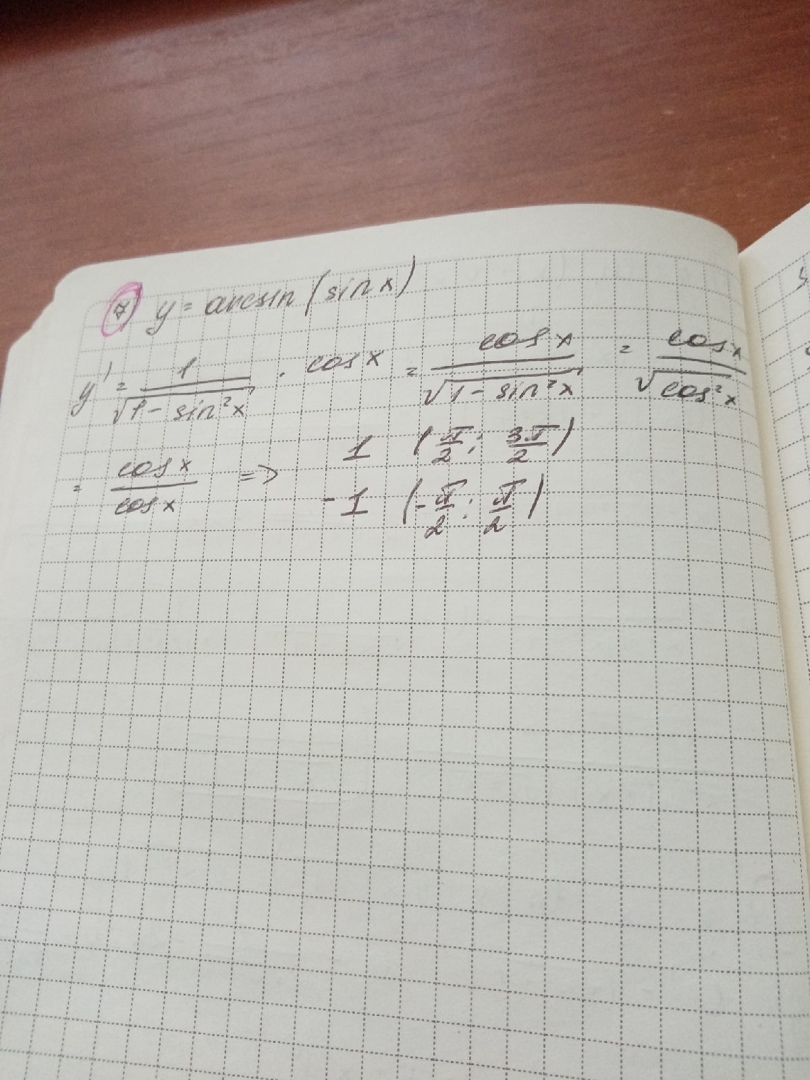 7) y = arcsin (sin x)
y' = 1/√(1 - sin²x) · cos x = cos x/√(1 - sin²x) = cos x/√(cos²x)
= cos x/cos x => 1 (π/2; 3π/2)
-1 (-π/2; π/2)